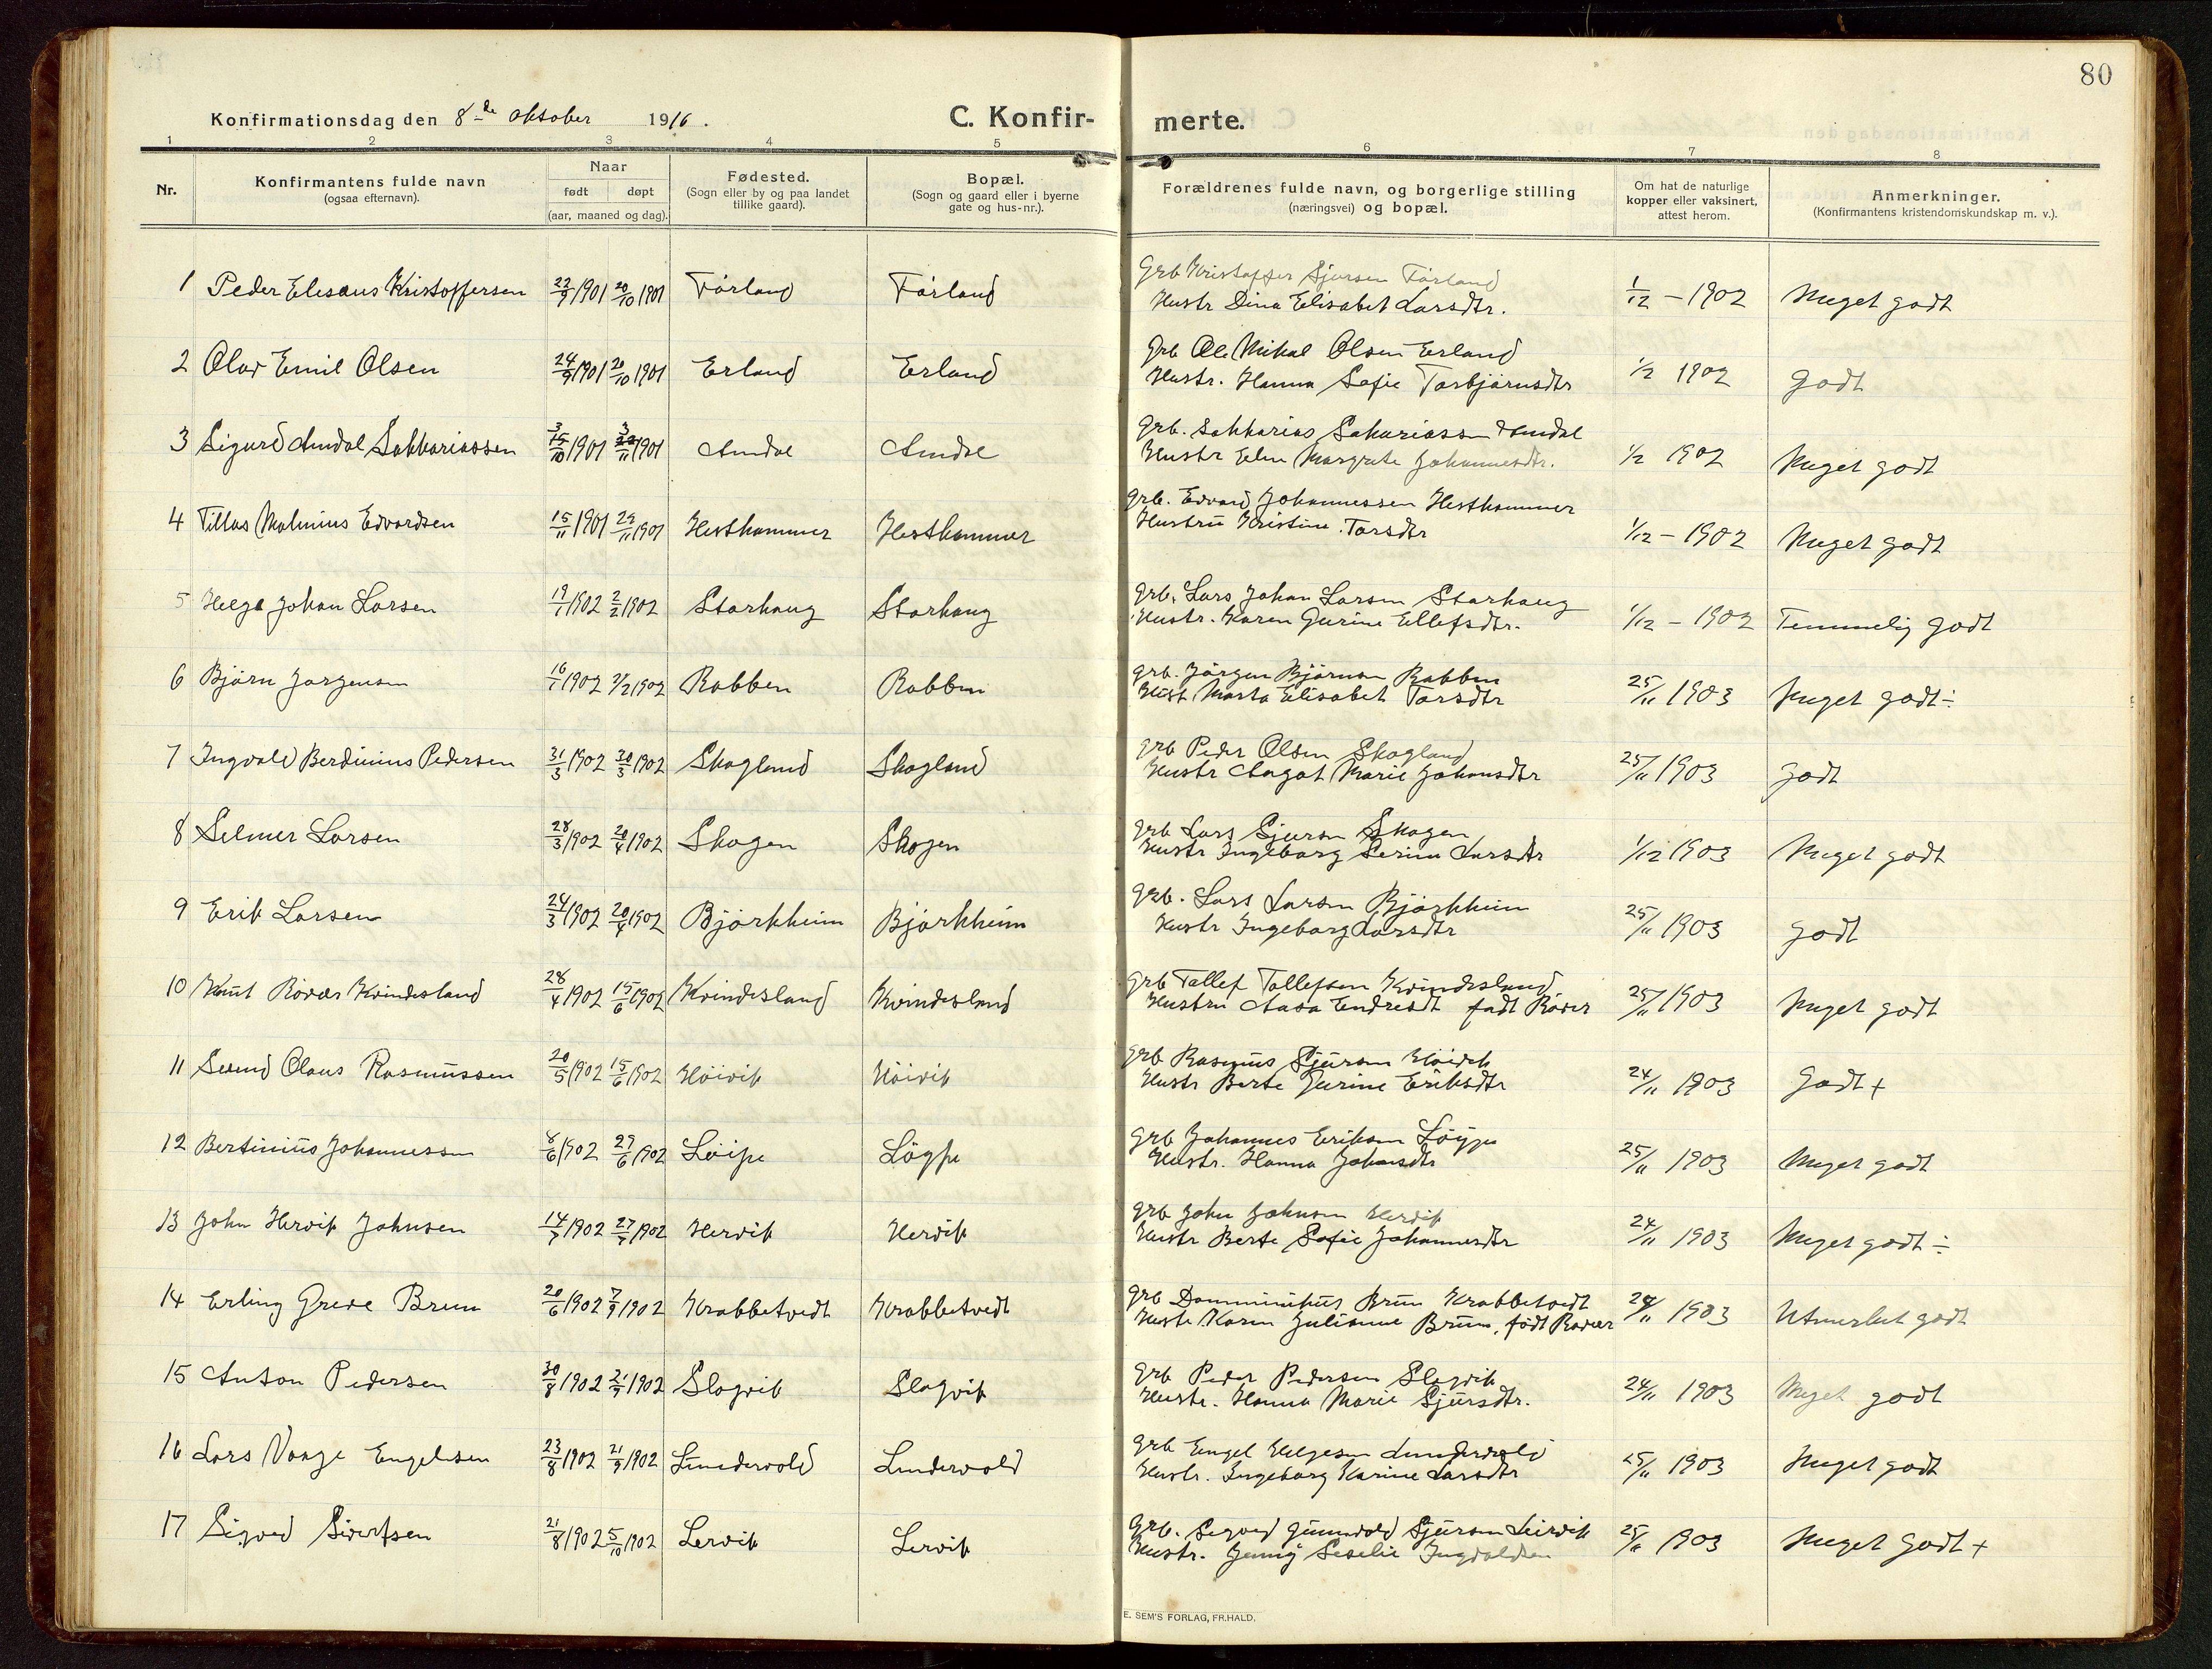 80
Konfirmationsdag den 8-de Oktober 1916.
C. Konfir-
merte.
1 2 3 4 5 6 7 8
Nr.
Konfirmantens fulde navn
(ogsaa efternavn).
Naar
født døpt
(aar, maaned og dag).
Fødested.
(Sogn eller by og paa landet
tillike gaard).
Bopæl.
(Sogn og gaard eller i byerne
gate og hus-nr.).
Forældrenes fulde navn, og borgerlige stilling
(næringsvei) og bopæl.
Om hat de naturlige
kopper eller vaksinert,
attest herom.
Anmerkninger.
(Konfirmantens kristendomskundskap m. v.).
1 Peder Eliseus Kristoffersen 22/9 1901 20/10 1901 Førland Førland
Grb Kristoffer Sjursen Førland
Hustr Dina Elisabet Larsdtr. 1/12 - 1902 Meget godt
2 Olav Emil Olsen 24/9 1901 20/10 1901 Erland Erland
Grb Ole Mikal Olsen Erland
Hustr. Hanna Sofie Torbjørnsdtr 1/2 1902 Godt
3 Sigurd Amdal Sakkariassen 1901 1901 Amdal Amdal
Grb. Sakkarias Sakariassen Amdal
Hustr Elen Margrete Johannesdtr. 1/2 1902 Meget godt
4 Tillas Malmius Edvardsen 15/11 1901 24/11 1901 Hesthammer Hesthammer
Grb. Edvard Johannessen Hesthammer
Hustru Kristine Torsdtr 1/12 - 1902 Meget godt
5 Helge Johan Larsen 19/1 1902 2/2 1902 Storhaug Storhaug
Grb. Lars Johan Larsen Storhaug
Hustr. Karen Gurine Ellefsdtr. 1/12 - 1902 Temmelig godt
6 Bjørn Jørgensen 16/1 1902 2/2 1902 Robben Robben
Grb. Jørgen Bjørnsen Robben
Hust Marta Elisabet Torsdtr 25/11 1903 Meget godt ÷
7 Ingvald Berdinius Pedersen 31/3 1902 30/3 1902 Skogland Skogland
Grb Peder Olsen Skogland
Hustr Aagot Marie Johansdtr 25/11 1903 Godt
8 Selmer Larsen 28/3 1902 20/4 1902 Skogen Skogen
Grb Lars Sjursen Skogen
Hustr Ingeborg Serine Larsdtr 1/12 1903 Meget godt
9 Erik Larsen 24/3 1902 20/4 1902 Bjørkheim Bjørkheim
Grb. Lars Larsen Bjørkheim
Hustr Ingeborg Larsdtr 25/11 1903 Godt
10 Knut Røvær Kvindesland 28/4 1902 15/6 1902 Kvindesland Kvindesland
Grb Tollef Tollefsen Kvindesland
Hustru Aasa Endresdt født Røvær 25/11 1903 Meget godt
11 Svend Olaus Rasmussen 20/5 1902 15/6 1902 Høivik Høivik
Grb Rasmus Sjursen Høivik
Hustr Berte Gurine Eriksdtr 24/11 1903 Godt +
12 Bertinius Johannessen 8/6 1902 29/6 1902 Løipe Løype
Grb Johannes Eriksen Løype
Hustr. Hanna Johansdtr 25/11 1903 Meget godt
13 John Hervik Johnsen 14/7 1902 27/7 1902 Hervik Hervik
Grb John Johnsen Hervik
Hustr Berte Sofie Johannesdtr 24/11 1903 Meget godt ÷
14 Erling Greve Brun 20/6 1902 7/9 1902 Krabbetvedt Krabbetvedt
Grb Domminikus Brun Krabbetvedt
Hustr Karen Julianne Brun, født Røvær 24/11 1903 Utmerket godt
15 Anton Pedersen 30/8 1902 21/9 1902 Slogvik Slogvik
Grb Peder Pedersen Slogvik
Hustr. Hanna Marie Sjursdtr. 24/11 1903 Meget godt
16 Lars Vaage Engelsen 23/8 1902 21/9 1902 Lundervold Lundervold
Grb Engel Helgesen Lundervold
Hustr. Ingeborg Karine Larsdtr 25/11 1903 Meget godt
17 Sigvd Sivertsen 21/8 1902 5/10 1902 Lervik Lervik
Grb. Sigved Gunnvald Sjursen Leirvik
Hustr. Jenny Seselie Ingvaldsen 25/11 1903 Meget godt +
E. SEM'S FORLAG, FR.HALD.